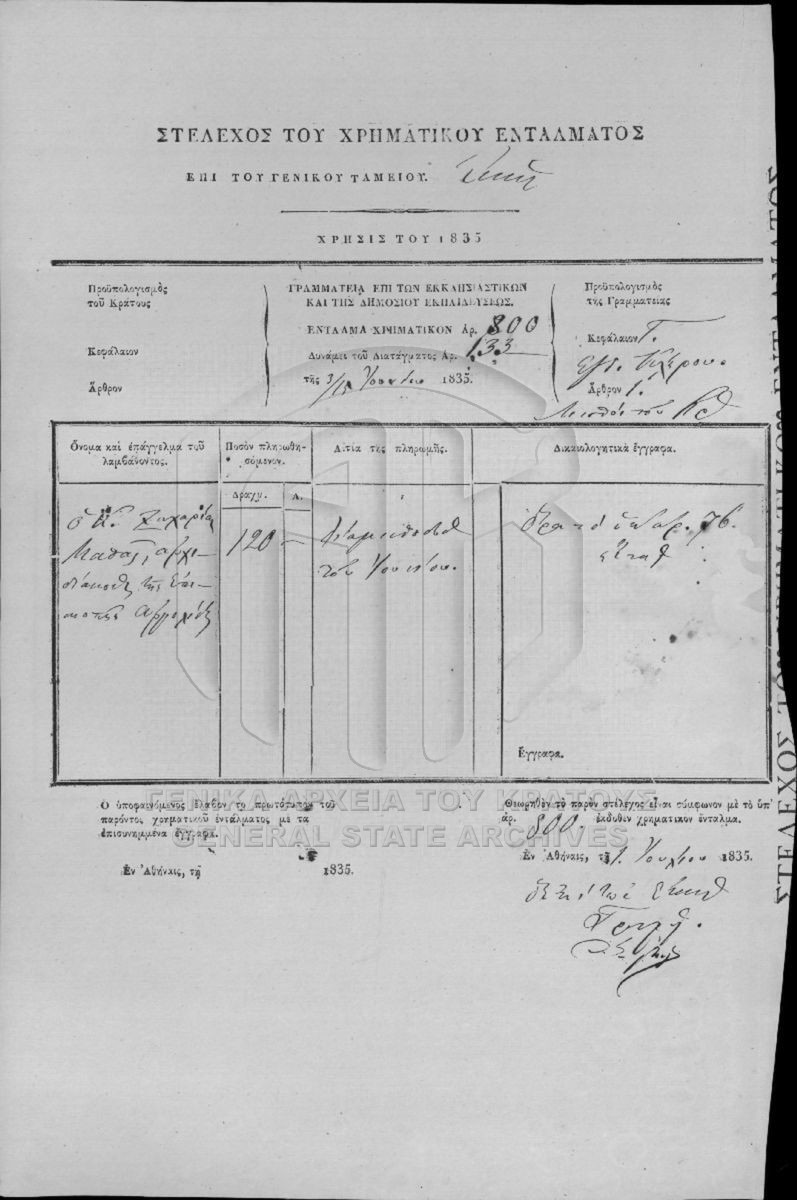 ΣΤΕΛΕΧΟΣ ΤΟΥ ΧΡΗΜΑΤΙΚΟΥ ΕΝΤΑΛΜΑΤΟΣ
ΕΠΙ ΤΟΥ ΓΕΝΙΚΟΥ ΤΑΜΕΙΟΥ.
ΧΡΗΣΙΣ ΤΟΥ 1835
Προϋπολογισμὸς
τοῦ Κράτους
Κεφάλαιον
Ἄρθρον
ΓΡΑΜΜΑΤΕΙΑ ΕΠΙ ΤΩΝ ΕΚΚΛΗΣΙΑΣΤΙΚΩΝ
ΚΑΙ ΤΗΣ ΔΗΜΟΣΙΟΥ ΕΚΠΑΙΔΕΥΣΕΩΣ.
ΕΝΤΑΛΜΑ ΧΡΗΜΑΤΙΚΟΝ Ἀρ. 800
Δυνάμει τοῦ Διατάγματος Ἀρ. 133
τῆς 3/15 Ἰουνίου 1835.
Προϋπολογισμὸς
τῆς Γραμματείας
Κεφάλαιον Γ.
Ἄρθρον 1.
Ὄνομα καὶ ἐπάγγελμα τοῦ
λαμβάνοντος.
Ποσὸν πληρωθη-
σόμενον.
Αἰτία τῆς πληρωμῆς.
Δικαιολογητικὰ ἔγγραφα.
Δραχμ.
Λ.
ὁ Κ. Ζαχαρίας
Μαθᾶς, ἀρχι-
διάκονος τῆς Ἐπι-
σκοπῆς
120 —
τοῦ Ἰουνίου.
ἀρ. 76.
Ἔγγραφα.
Ὁ ὑποφαινόμενος ἔλαβον τὸ πρωτότυπον τοῦ
παρόντος χρηματικοῦ ἐντάλματος μὲ τὰ
ἐπισυνημμένα ἔγγραφα.
Ἐν Ἀθήναις, τῇ 1835.
Θεωρηθὲν τὸ παρὸν στέλεχος εἶναι σύμφωνον μὲ τὸ ὑπ'
ἀρ. 800. ἐκδοθὲν χρηματικὸν ἔνταλμα.
Ἐν Ἀθήναις, τῇ 1. Ἰουλίου 1835.
ΓΕΝΙΚΑ ΑΡΧΕΙΑ ΤΟΥ ΚΡΑΤΟΥΣ
GENERAL STATE ARCHIVES